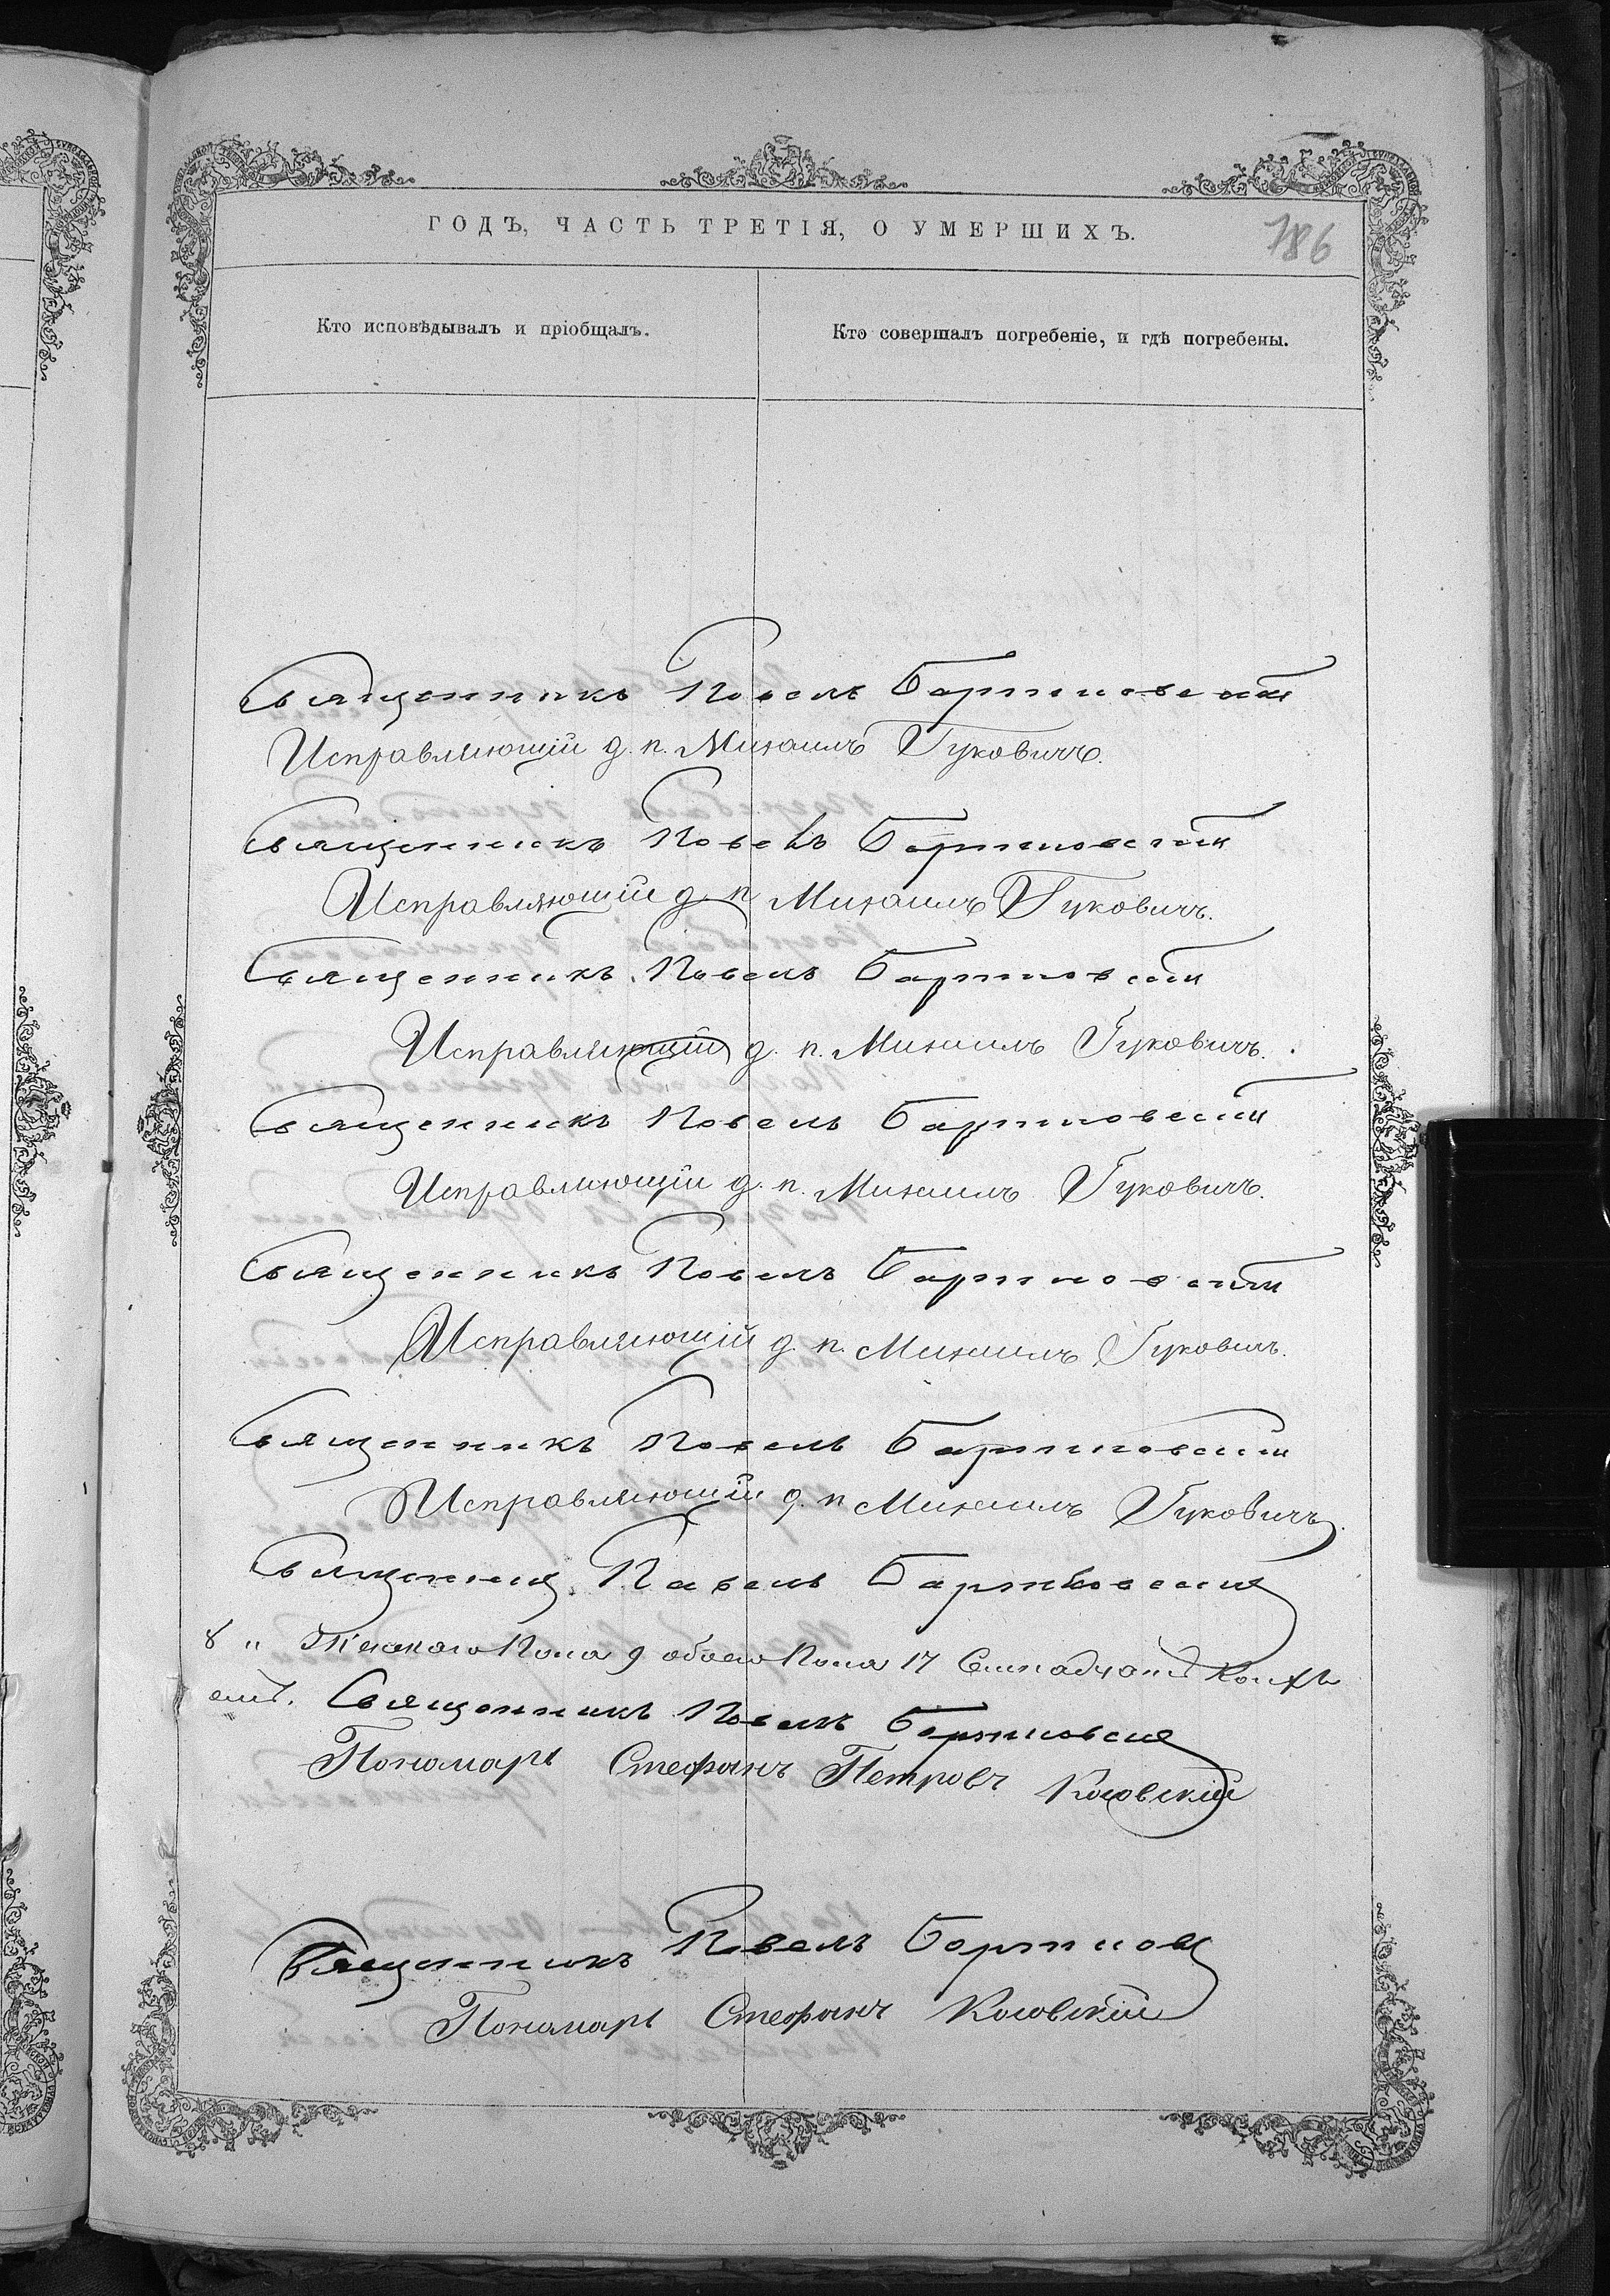 ГОДЪ, ЧАСТЬ ТРЕТІЯ, О УМЕРШИХЪ.
186
Кто исповѣдывалъ и пріобщалъ.
Кто совершалъ погребеніе, и гдѣ погребены.
Священникъ Павелъ Бартновскій
Исправляющій д. п. Михаилъ Гуковичъ.
Священникъ Павелъ Бартновскій
Исправляющій д. п. Михаилъ Гуковичъ.
Священникъ Павелъ Бартновскій
Исправляющій д. п. Михаилъ Гуковичъ.
Священникъ Павелъ Бартновскій
Исправляющій д. п. Михаилъ Гуковичъ.
Священникъ Павелъ Бартновскій
Исправляющій д. п. Михаилъ Гуковичъ.
Священникъ Павелъ Бартновскій
Исправляющій д. п. Михаилъ Гуковичъ
Священник Павелъ Бартновский
8 „ Женскаго Пола 9 обоего Пола 17
Священникъ Павелъ
Пономарь Стефанъ Петровъ Косовскій
Священникъ Павелъ
Пономарь Стефанъ Косовскій